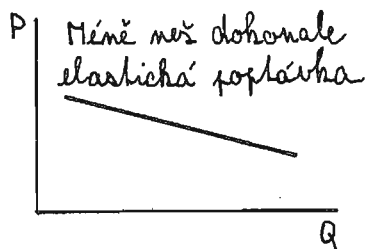 P Méně než dokonale
elastická poptávka
Q